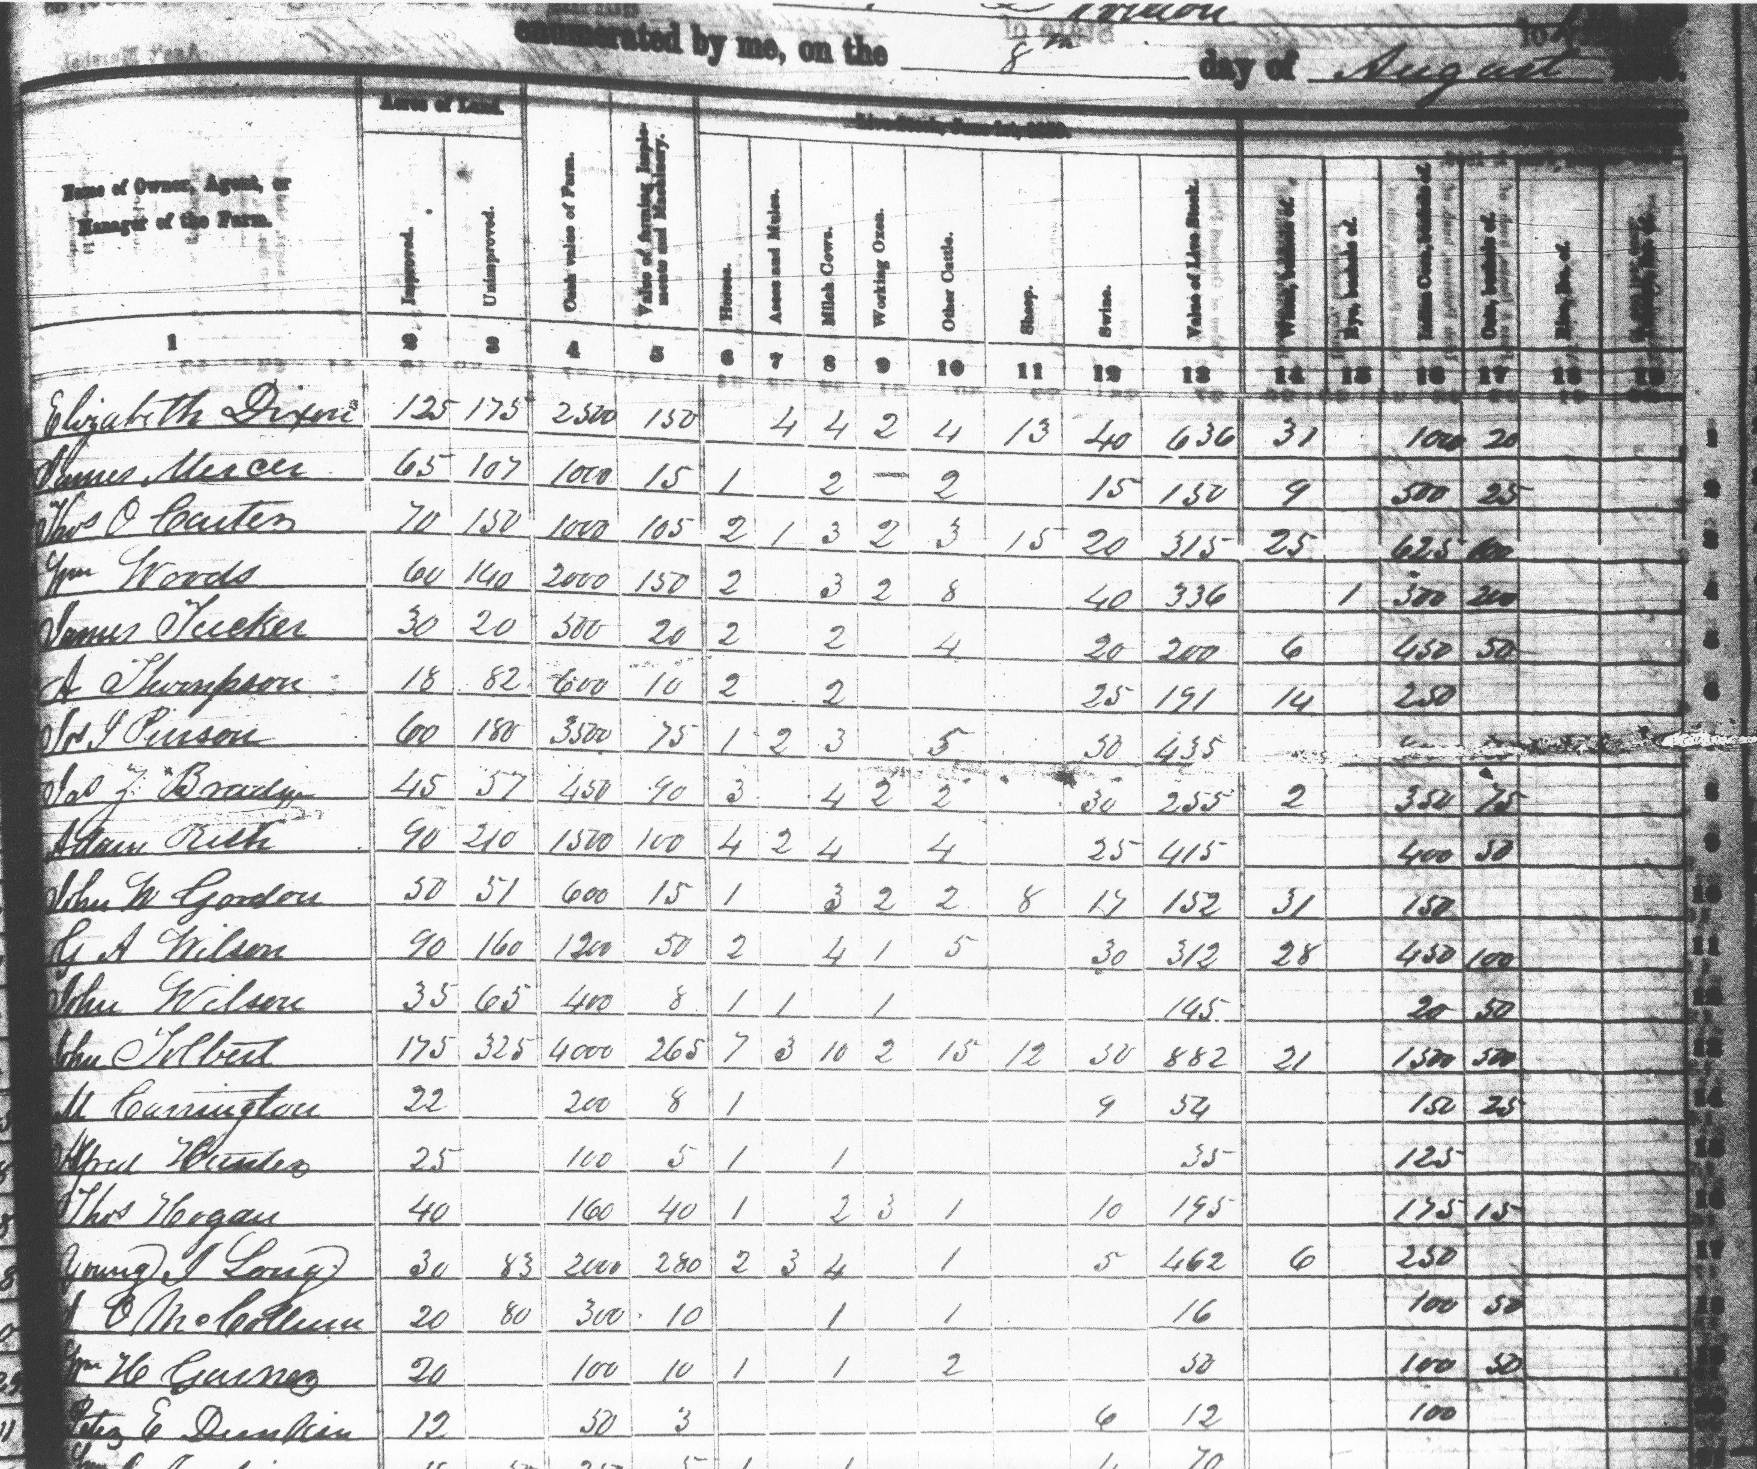 enumerated by me, on the 8th day of August
Acres of Land.
Live Stock, June 1st, 1850.
Name of Owner, Agent, or Manager of the Farm.
Improved.
Unimproved.
Cash value of Farm.
Value of farming Implements and Machinery.
Horses.
Asses and Mules.
Milch Cows.
Working Oxen.
Other Cattle.
Sheep.
Swine.
Value of Live Stock.
Wheat, bushels of.
Rye, bushels of.
Indian Corn, bushels of.
Oats, bushels of.
Rice, lbs. of.
1 2 3 4 5 6 7 8 9 10 11 12 13 14 15 16 17 18 19
Elizabeth Dixon 125 175 2500 150 4 4 2 4 13 40 636 31 1000 20 1
James Mercer 65 107 1000 15 1 2 — 2 15 150 9 500 25 2
Thos O Carter 70 150 1000 105 2 1 3 2 3 15 20 315 25 625 600 3
Wm Woods 60 140 2000 150 2 3 2 8 40 336 1 300 200 4
James Tucker 30 20 500 20 2 2 4 20 200 6 450 50 5
A Thompson 18 82 600 10 2 2 25 191 14 250 6
Jos J Pinson 60 180 3500 75 1 2 3 5 50 435
Jas Z 45 57 450 90 3 4 2 2 30 255 2 350 75 8
Adam 90 210 1500 100 4 2 4 4 25 415 400 50 9
John W Gordon 50 51 600 15 1 3 2 2 8 17 152 31 150 10
G A Wilson 90 160 1200 50 2 4 1 5 30 312 28 450 100 11
John Wilson 35 65 400 8 1 1 1 145 20 50 12
John Tolbert 175 325 4000 265 7 3 10 2 15 12 50 882 21 1500 500 13
M Carrington 22 200 8 1 9 54 150 25 14
Alfred Hunter 25 100 5 1 1 35 125 15
Thos Hogan 40 160 40 1 2 3 1 10 195 175 15 16
Young J Long 30 83 2000 280 2 3 4 1 5 462 6 250 17
O McCollum 20 80 300 10 1 1 16 100 50 18
Wm H Garner 20 100 10 1 1 2 50 100 50 19
Peter E Dunkin 12 50 3 6 12 100 20